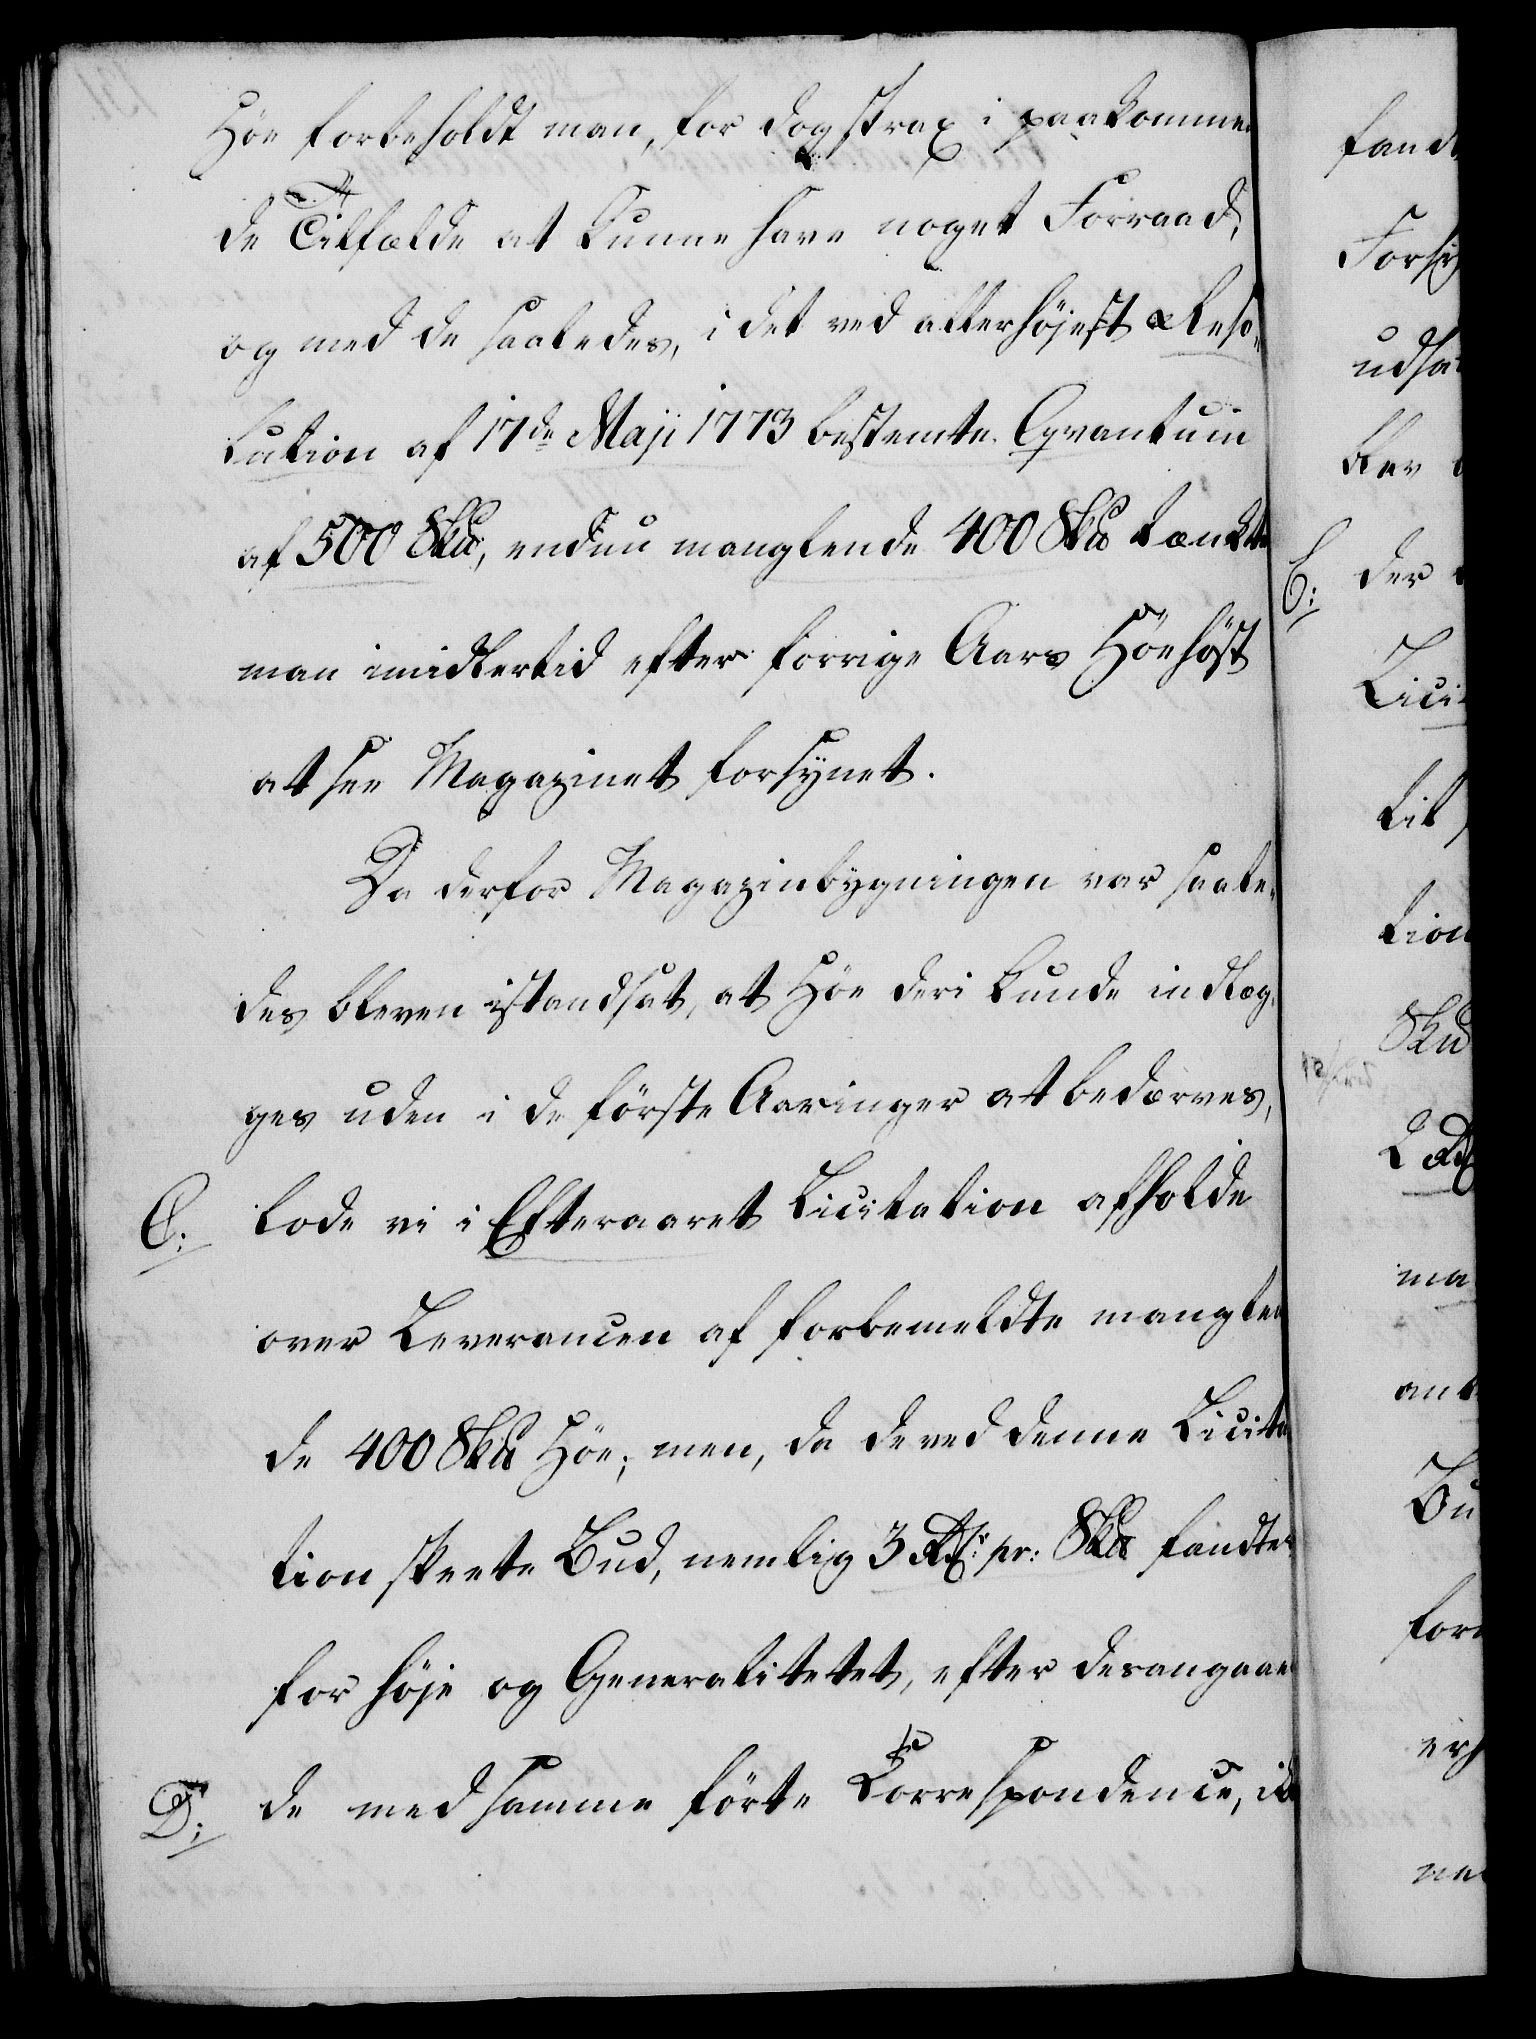 Höe forbeholdt man, for dog strax i paakommen
de Tilfælde at kunne have noget Forraad,
og med de saaledes, i det ved allerhöjest Reso-
lution af 17de Maji 1773 bestemte Qvantum
af 500 Sk℔, endnu manglende 400 Sk℔ tænkte
man imidlertid efter forrige Aars Höehöst
at see Magazinet forsynet.
Da derfor Magazinbygningen var saale-
des bleven istandsat, at Höe deri kunde indlæg-
ges uden i de förste Aaringer at bedærves,
C: lode vi i Efteraaret Licitation afholde
over Leverancen af forbemeldte manglen
de 400 Sk℔ Höe; men, da de ved denne Licita
tion skeete Bud, nemlig 3 Rdr: pr: Sk℔ fandtes
for höje og Generalitetet, efter desangaaen
D: de med samme förte Correspondence, ik
fandt
Forsy
udsat
blev
E: der
Licit
til
tion
Sk℔
2 Rd
ma
ant
Bu
for
erh
ne